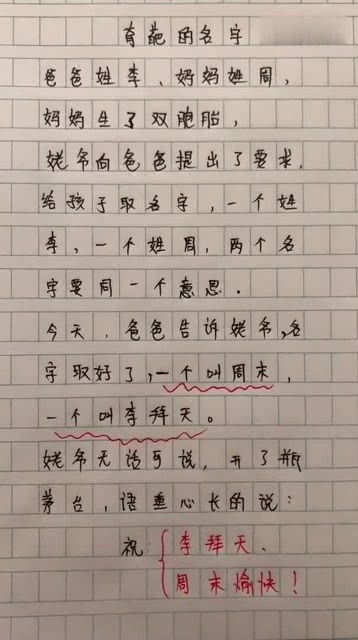 有葩的名字
爸爸姓李、妈妈姓周，
妈妈生了双胞胎，
姥爷向爸爸提出了要求，
给孩子取名字，一个姓
李，一个姓周，两个名
字要同一个意思。
今天，爸爸告诉姥爷，名
字取好了，一个叫周末，
一个叫李拜天。
姥爷无话可说，开了瓶
茅台，语重心长的说：
祝：李拜天、
周末愉快！